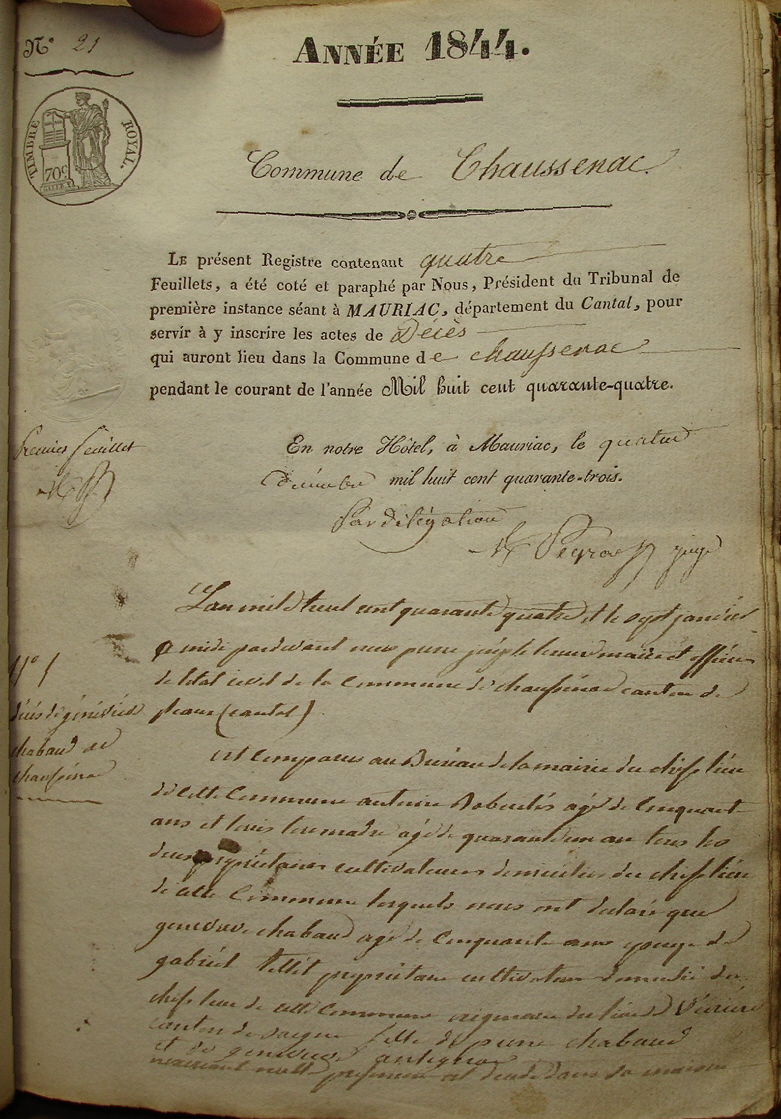 N° 21
ANNÉE 1844.
TIMBRE ROYAL.
70c
Commune de Chaussenac.
LE présent Registre contenant quatre
Feuillets, a été coté et paraphé par Nous, Président du Tribunal de
première instance séant à MAURIAC, département du Cantal, pour
servir à y inscrire les actes de Décès
qui auront lieu dans la Commune de chaussenac
pendant le courant de l'année Mil huit cent quarante-quatre.
Premier feuillet
En notre Hôtel, à Mauriac, le quatre
décembre mil huit cent quarante-trois.
Par délégation
juge
L'an mil huit cent quarante quatre et le sept janvier
a midi pardevant nous pierre joseph maire et officier
de letat civil de la Commune de chaussenac canton de
pleaux (cantal)
N° 1
décès de geneviève
chabaud de
chaussenac
est Comparus au Bureau de la mairie du chef lieu
de cette Commune antoine agé de Cinquante
ans et louis agé de quarante un an tous les
deux propriétaires cultivateurs domiciliés du chef lieu
de cette Commune lesquels nous ont declaré que
genevieve chabaud agé de Cinquante ans epouse de
gabriel propriétaire cultivateur domicilié du
chef lieu de cette Commune originaire du lieu de
canton de fille de pierre chabaud
et de genevieve antignac
est décédé dans sa maison